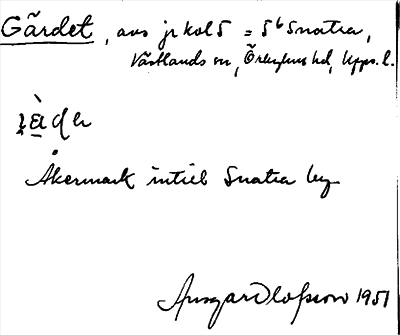 Gärdet, avs jr kol 5 = 5⁶ Snatra,
Västlands sn, Örbyhus hd, Upps. l.
Åkermark intill Snatra by
Ansgar Olofsson 1951